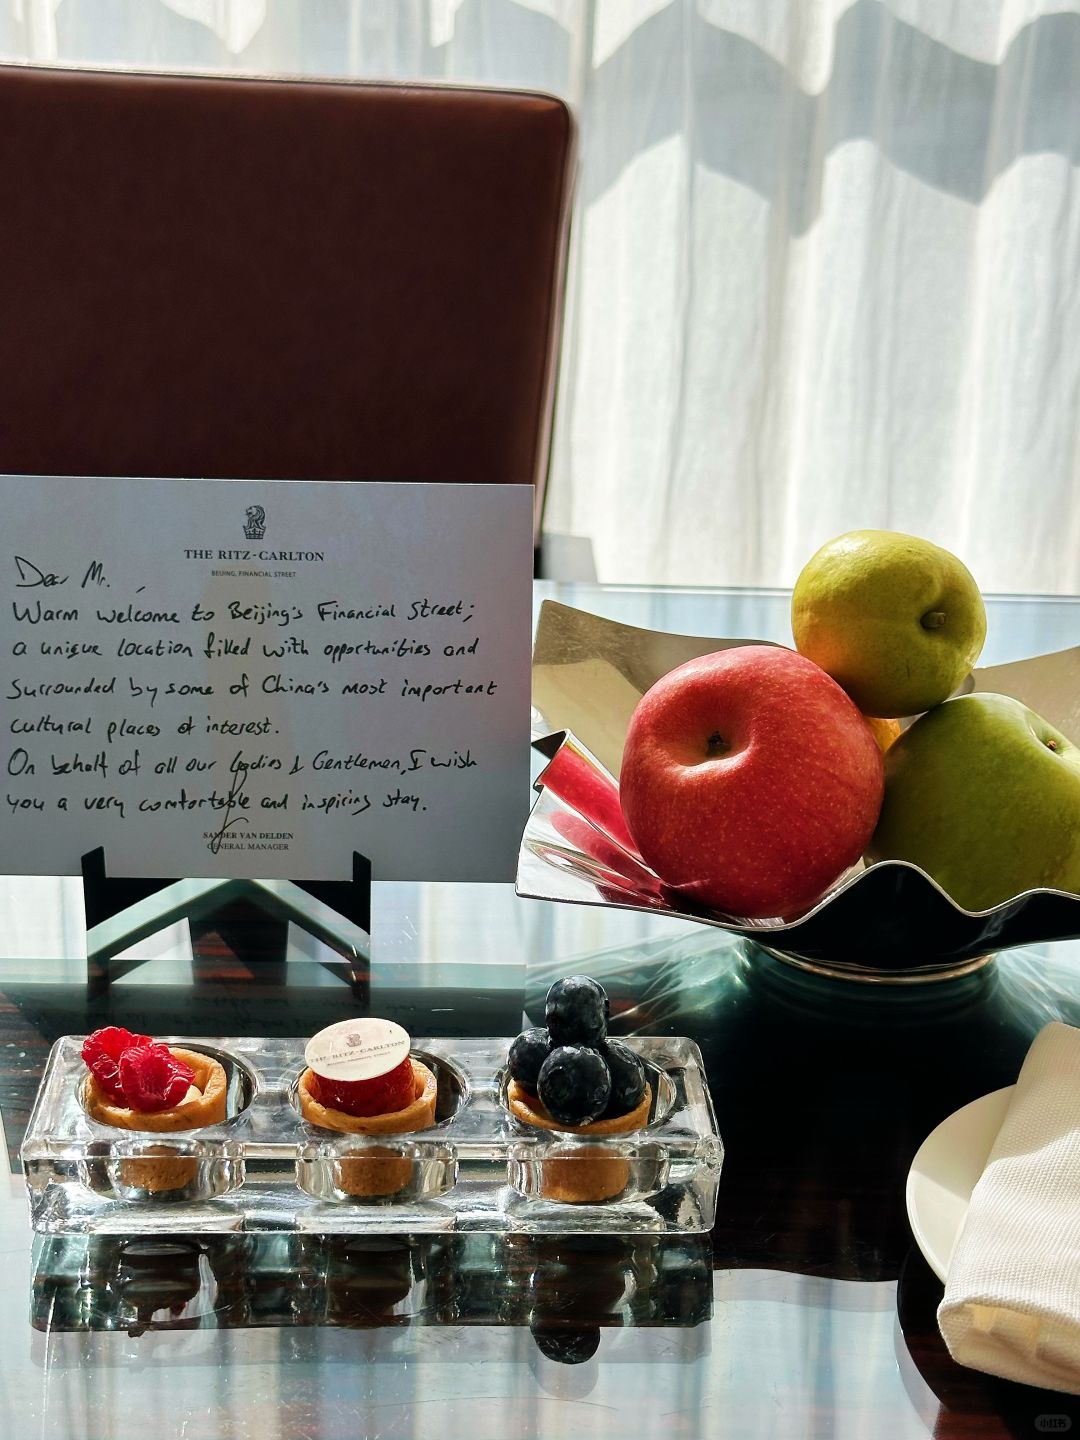 THE RITZ-CARLTON
BEIJING, FINANCIAL STREET
Dear Mr. ,
Warm welcome to Beijing's Financial Street;
a unique location filled with opportunities and
surrounded by some of China's most important
cultural places of interest.
On behalf of all our Ladies & Gentlemen, I wish
you a very comfortable and inspiring stay.
SANDER VAN DELDEN
GENERAL MANAGER
THE RITZ-CARLTON
小红书